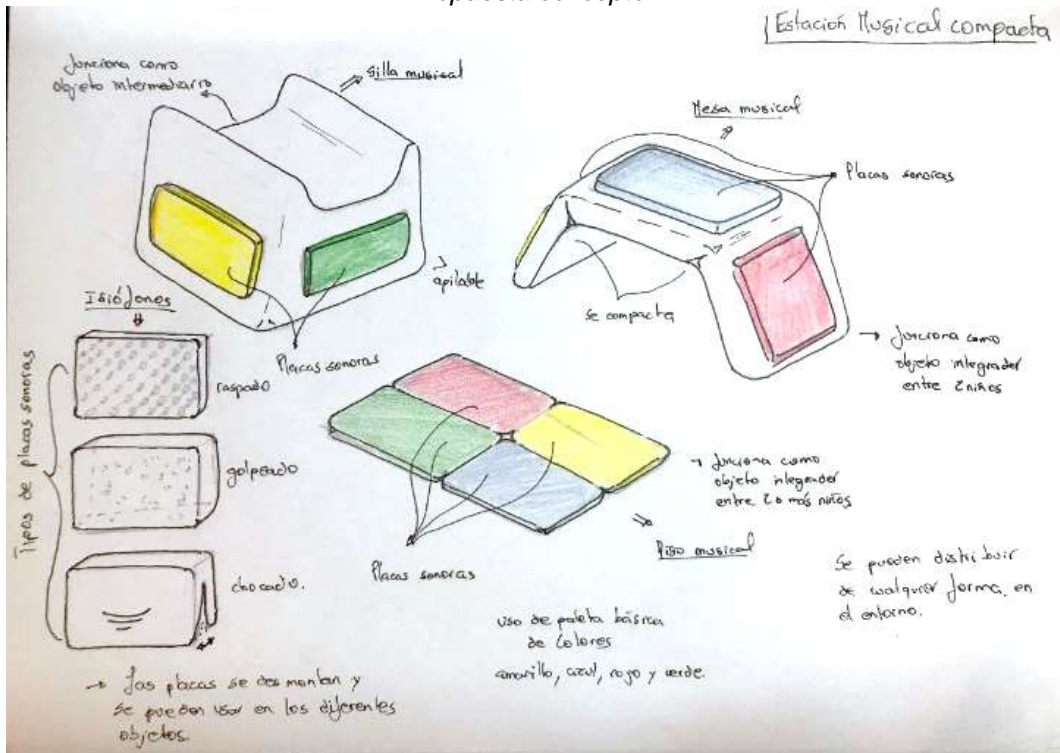 Estación Musical compacta
funciona como
objeto intermediario
silla musical
apilable
Placas sonoras
Mesa musical
Placas sonoras
se compacta
funciona como
objeto integrador
entre 2 niños
Idiófonos
Tipos de placas sonoras
raspado
golpeado
chocado.
Placas sonoras
funciona como
objeto integrador
entre 2 o más niños
Piso musical
uso de paleta básica
de colores
amarillo, azul, rojo y verde.
Se pueden distribuir
de cualquier forma, en
el entorno.
→ Las placas se desmontan y
se pueden usar en los diferentes
objetos.